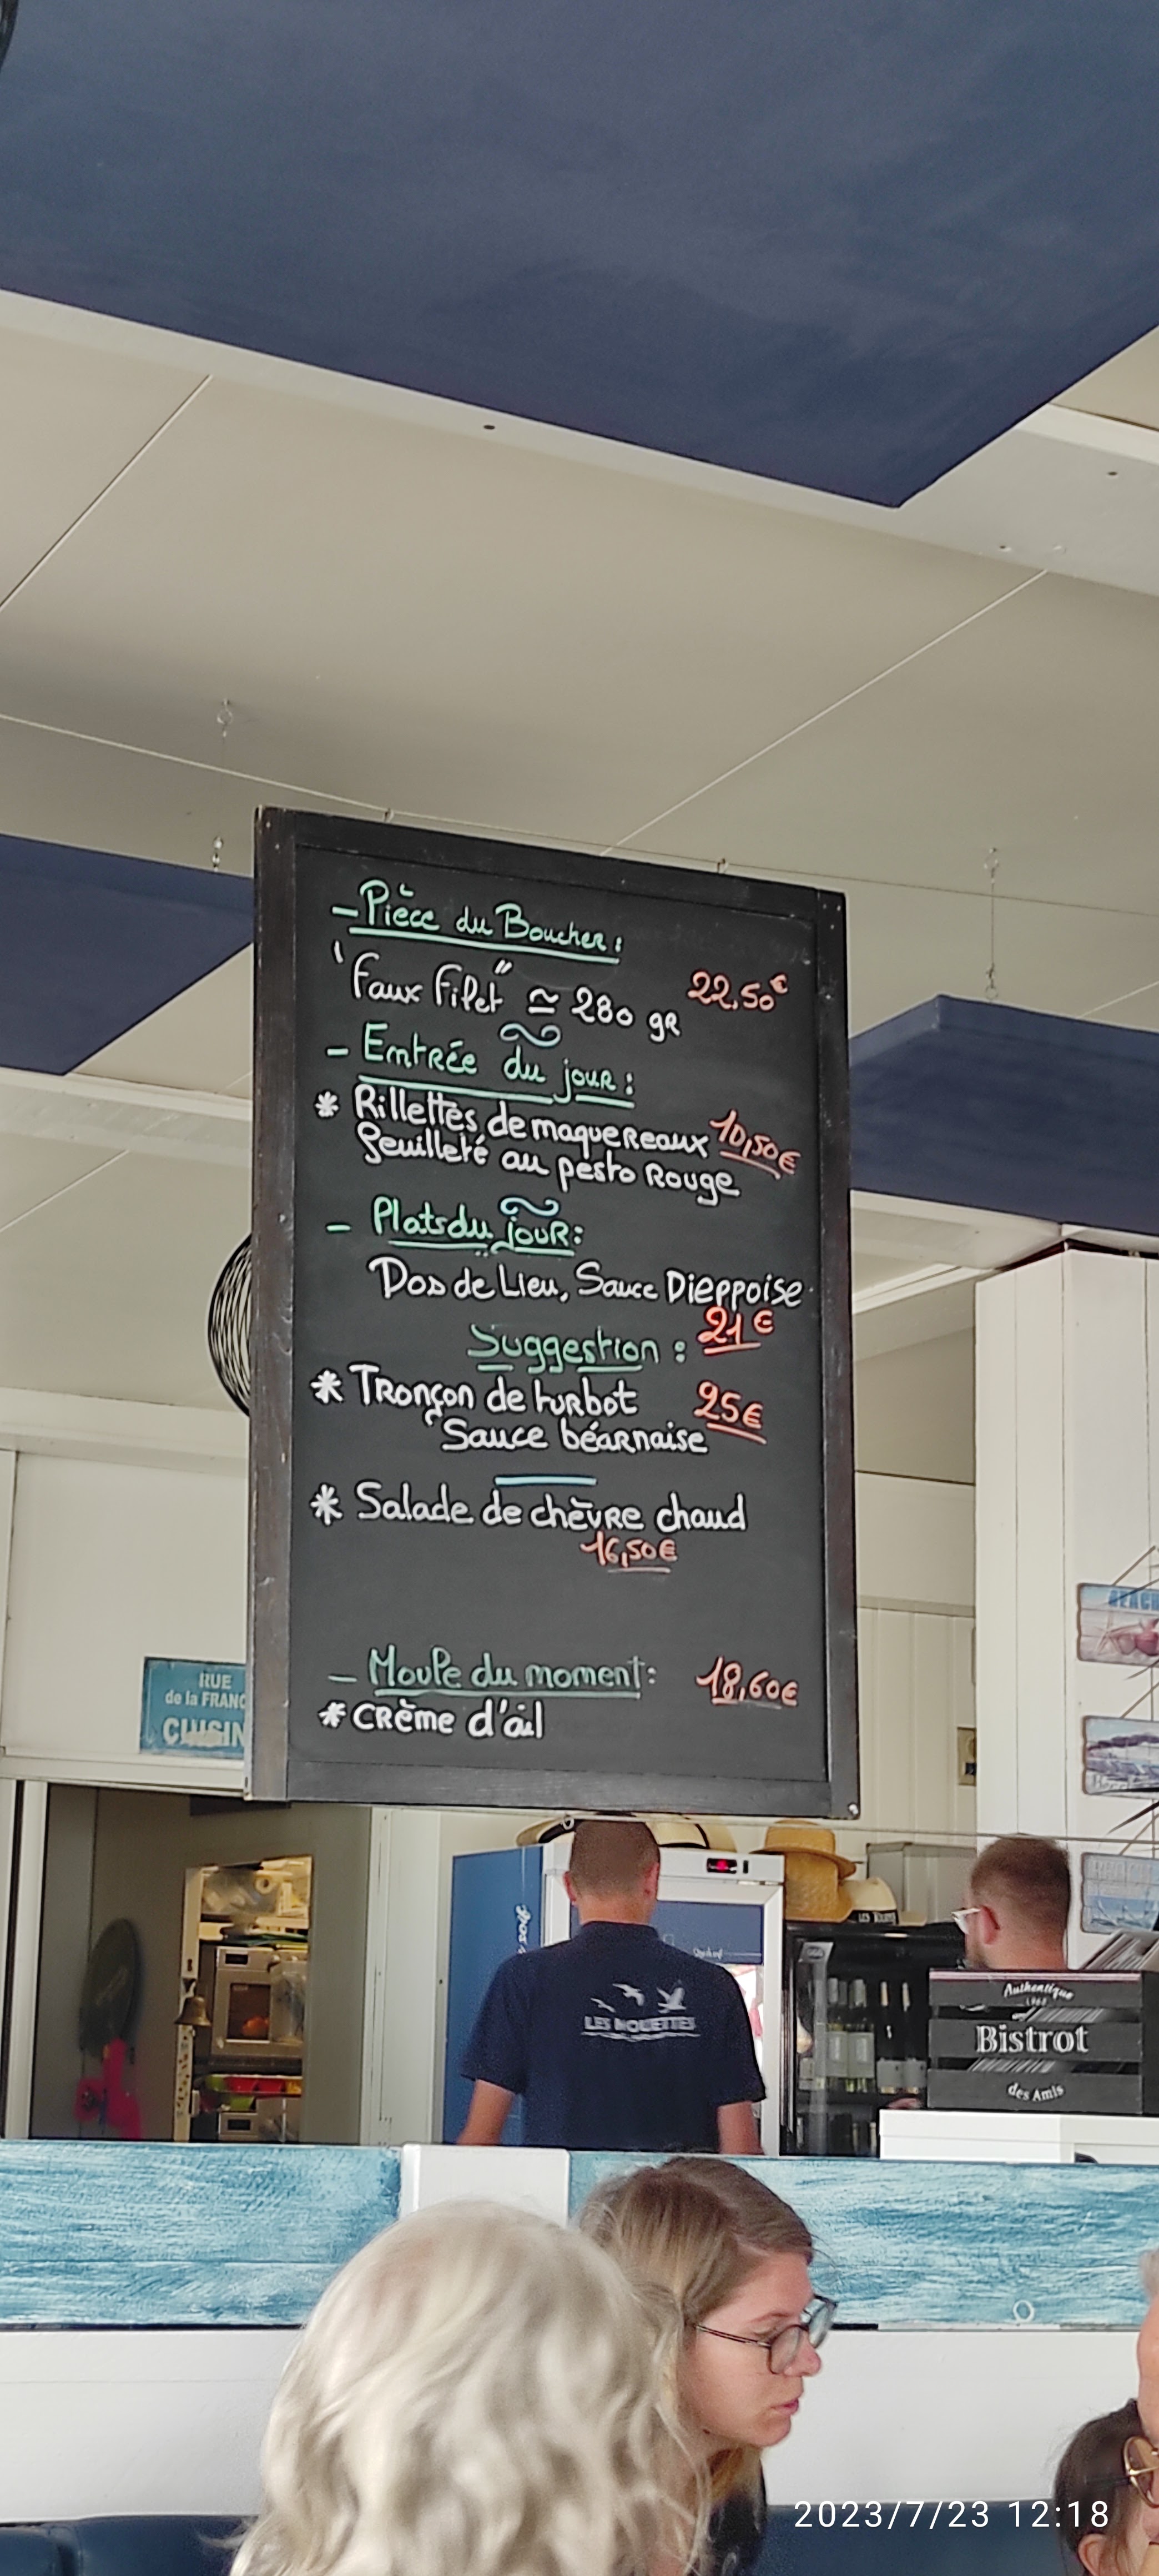 - Pièce du Boucher :
"Faux Filet" ≃ 280 gR 22.50€
- Entrée du jour :
* Rillettes de maquereaux 10,50€
feuilleté au pesto Rouge
- Plats du jour :
Dos de Lieu, Sauce Dieppoise
21€
Suggestion :
* Tronçon de turbot 25€
Sauce béarnaise
* Salade de chèvre chaud
16,50€
- Moule du moment : 18,60€
* Crème d'ail
RUE
de la FRANC
CUISIN
LES MOUETTES
Authentique
Bistrot
des Amis
2023/7/23 12:18